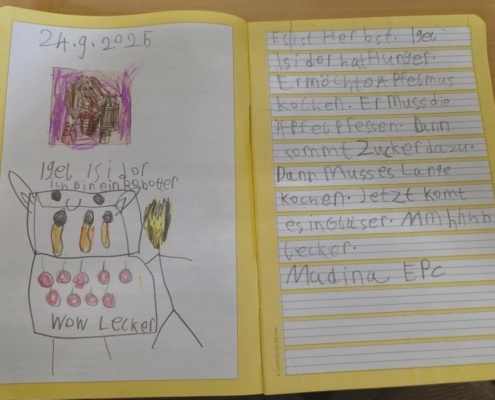 24.9.2025
Igel Isidor
Ich Bin ein Robotter
WOW LECKER
Es ist Herbst. Igel
Isidor hat Hunger.
Er möchte Apfelmus
kochen. Er Muss die
Äpfel Pfessen. Dann
kommt Zucker dazu.
Dann Muss es Lange
kochen. Jetzt komt
es in Gläser. Mmhhhh
Lecker.
Madina EPC